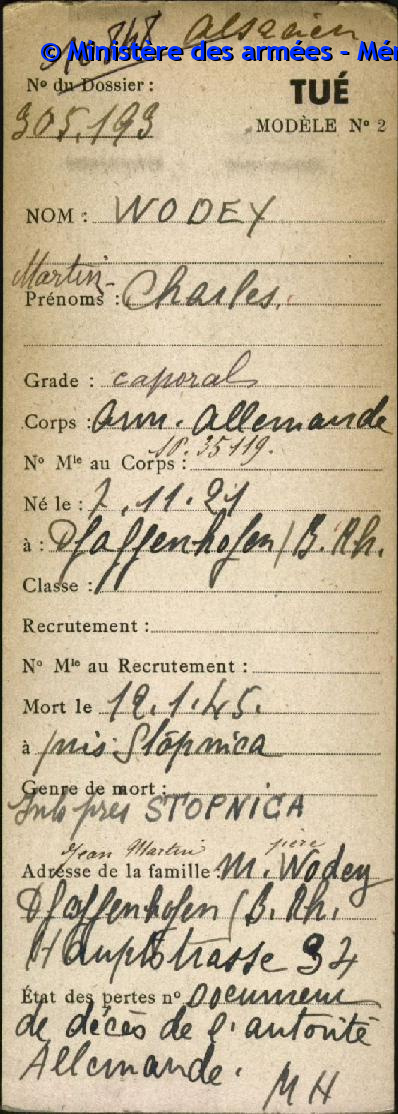 Alsacien
© Ministère des armées - Mém
N° du Dossier :
TUÉ
305.193
MODÈLE N° 2
NOM : WODEY
Martin-
Prénoms : Charles.
Grade : caporal
Corps : Arm. Allemande
N° Mle au Corps : 35119.
Né le : 7.11.21
à : Pfaffenhofen / B. Rh.
Classe :
Recrutement :
N° Mle au Recrutement :
Mort le 12.1.45.
à près Stopnica
Genre de mort :
près STOPNICA
Jean Martin père
Adresse de la famille : M. Wodey
Pfaffenhofen / B. Rh.
Hauptstrasse 34
État des pertes n° Document
de décès de l'autorité
Allemande.
MH